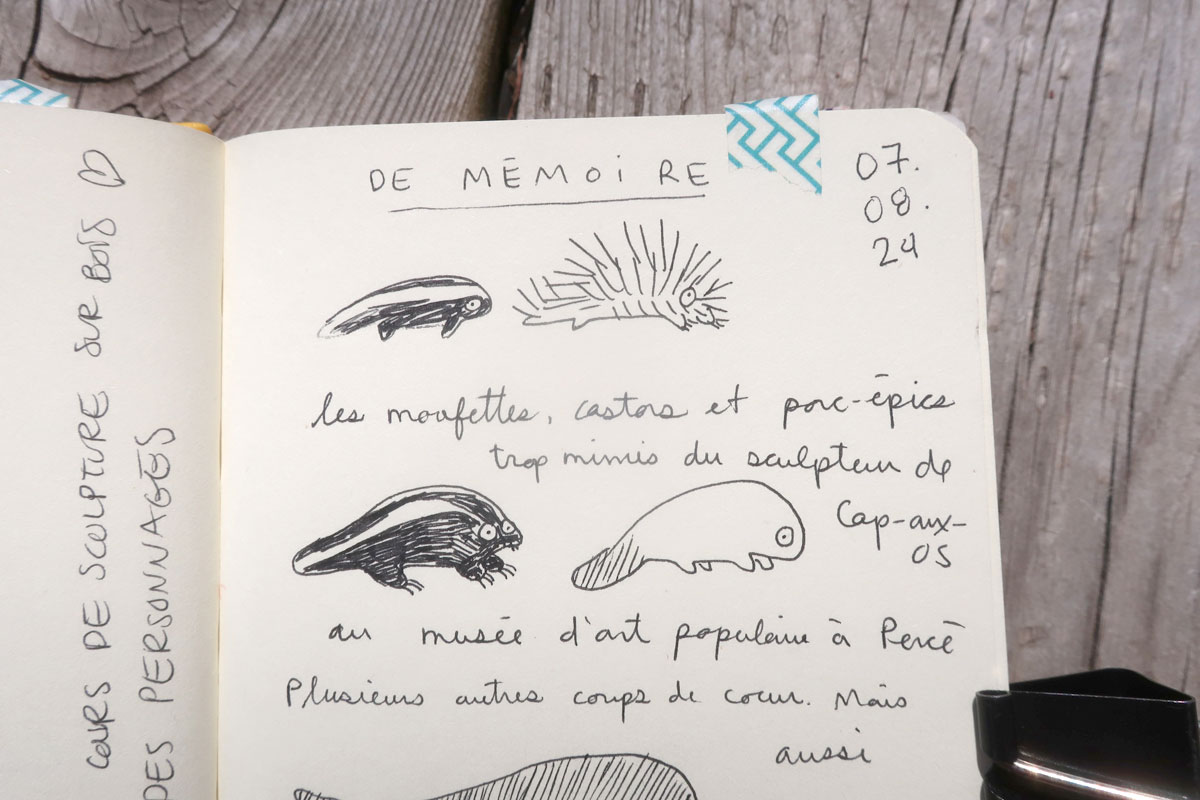 COURS DE SCULPTURE SUR BOIS ♡
DES PERSONNAGES
DE MÉMOIRE
07.
08.
24
les moufettes, castors et porc-épics
trop mimis du sculpteur de
Cap-aux-
OS
au musée d'art populaire à Percé
Plusieurs autres coups de coeur. Mais
aussi